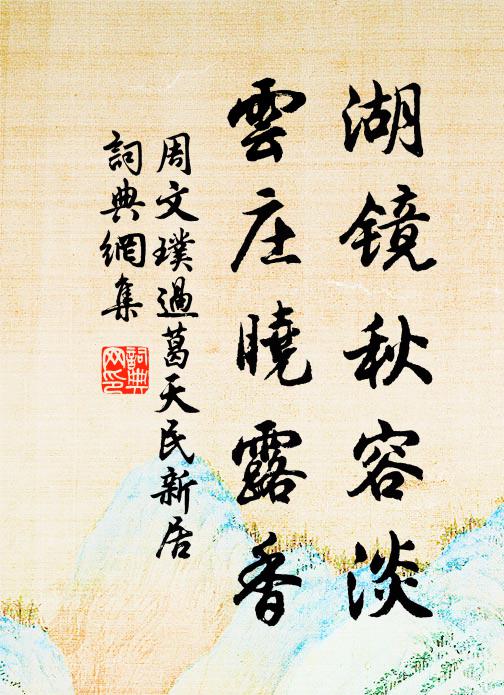 湖镜秋容淡
雲庄曉露香
周文璞過葛天民新居
詞典網集
詞典网印